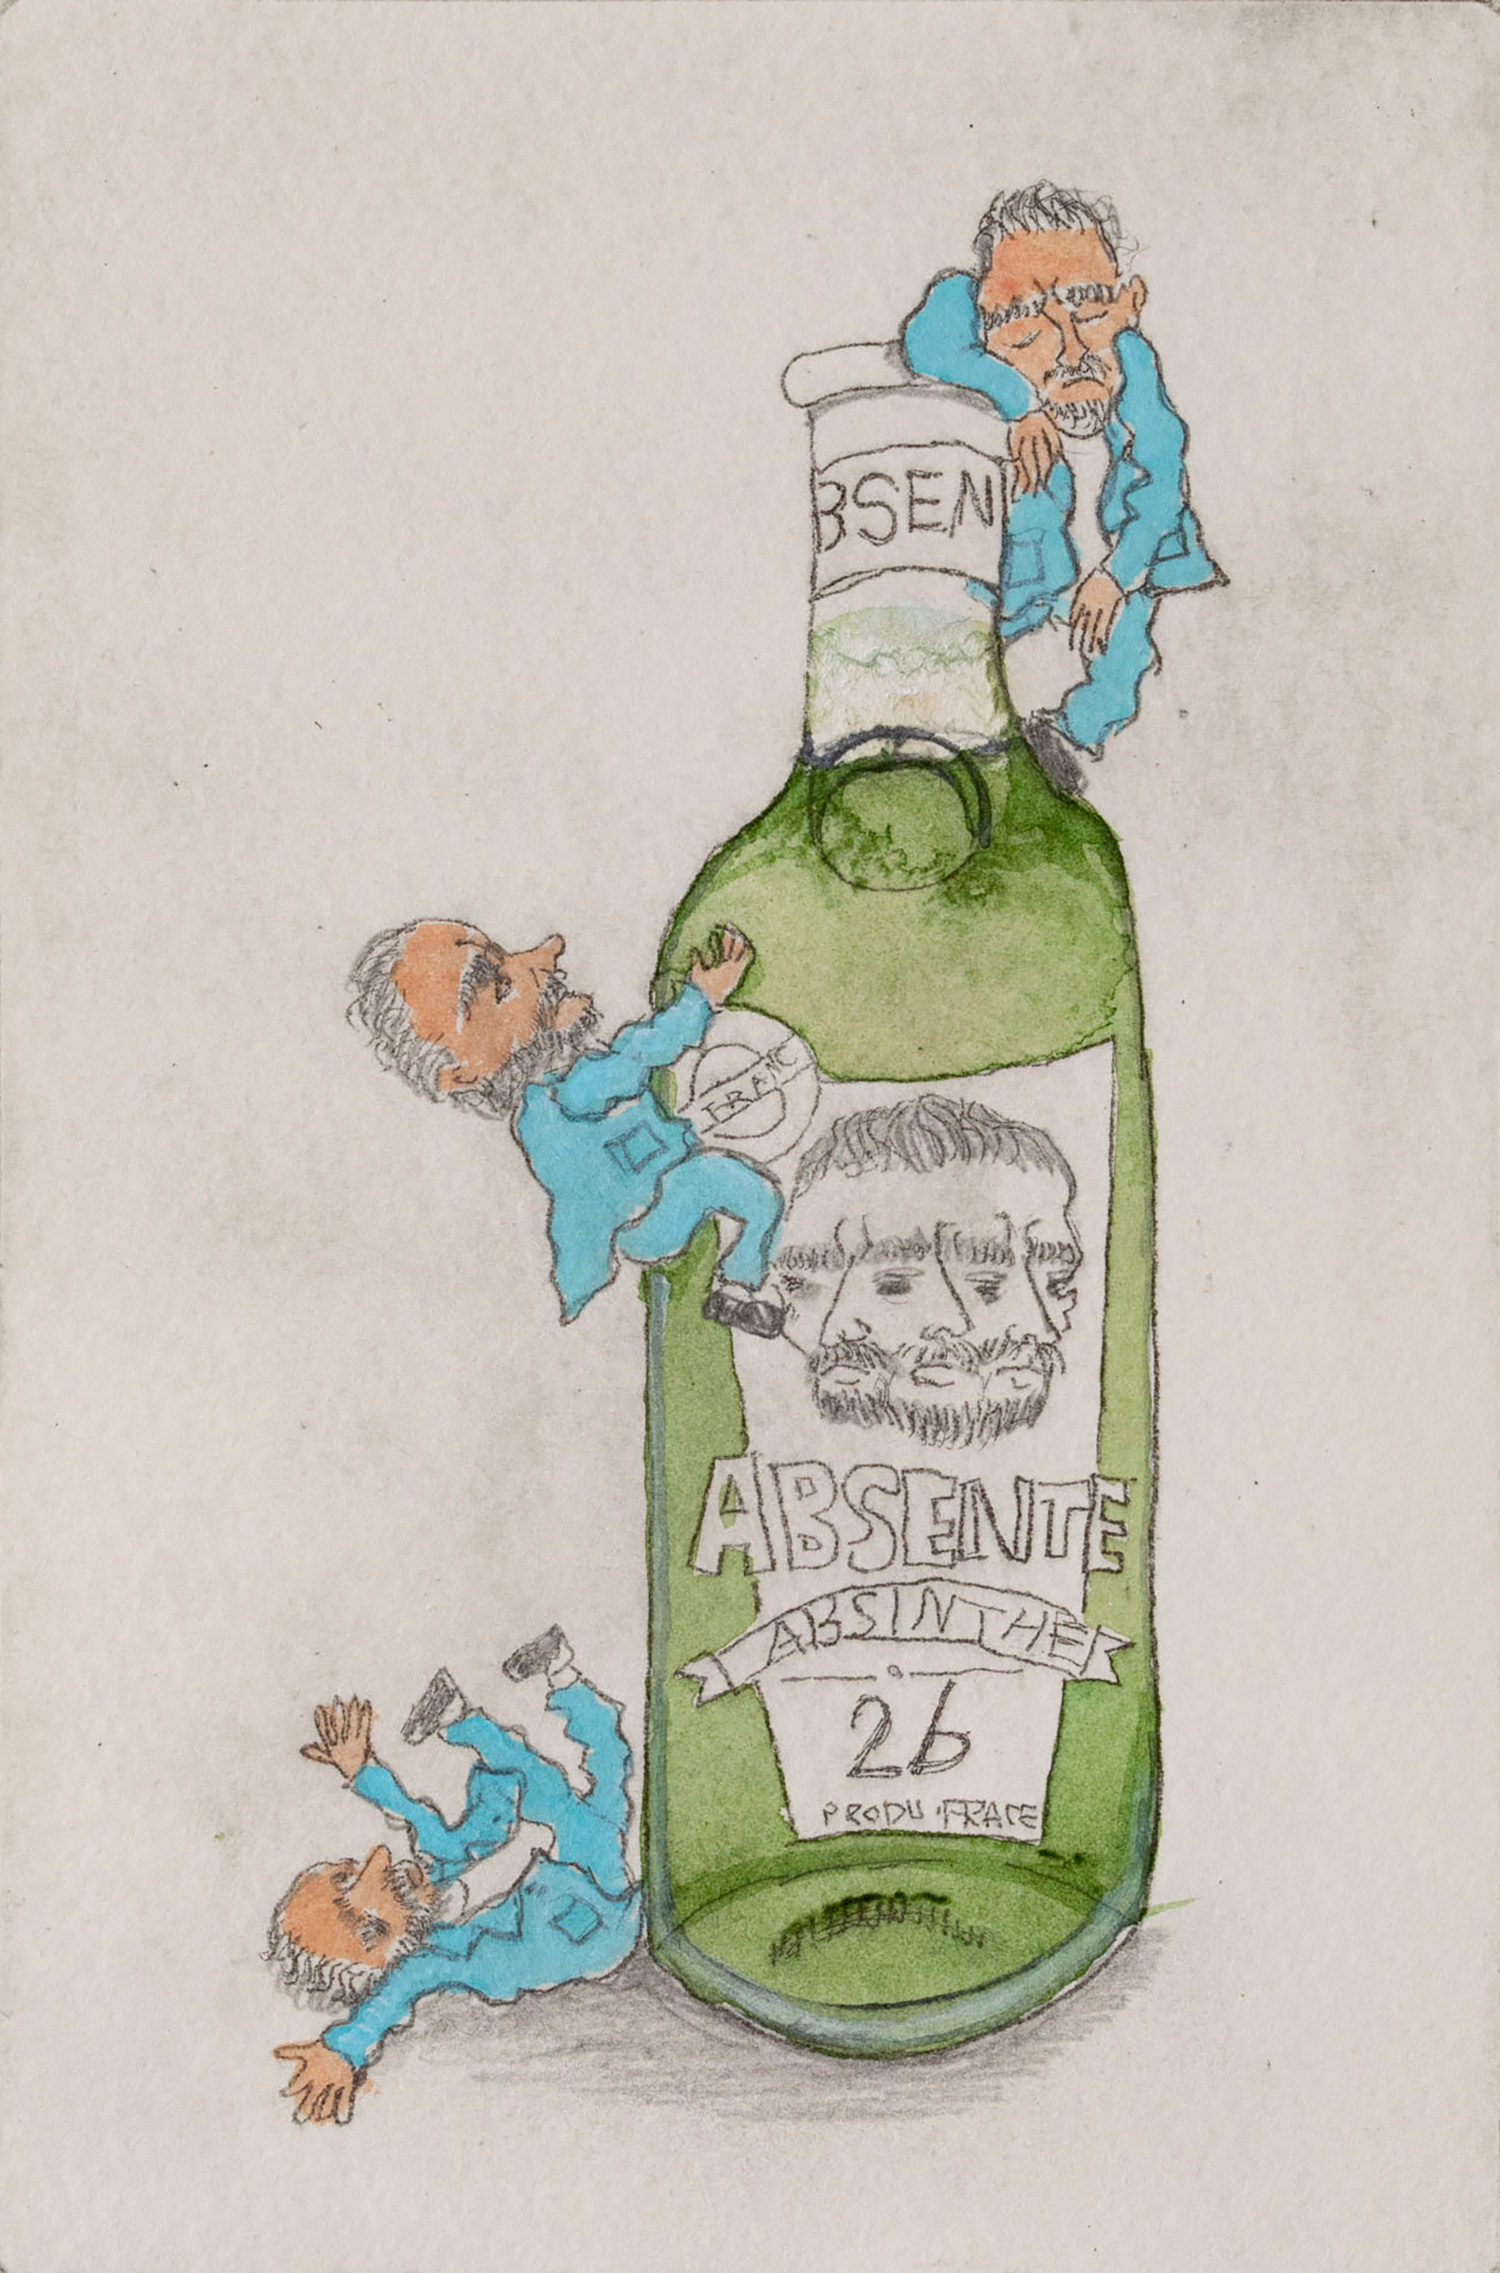 BSEN
FRANC
ABSENTE
ABSINTHE
26
PRODU·FRACE